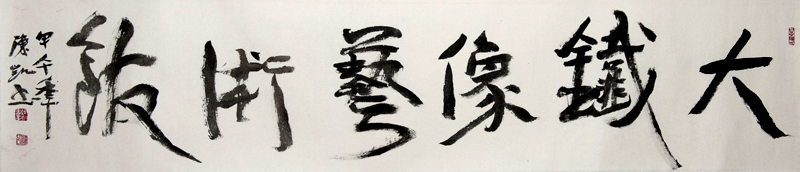 大鐵像藝術飯
甲午年
陳凱書